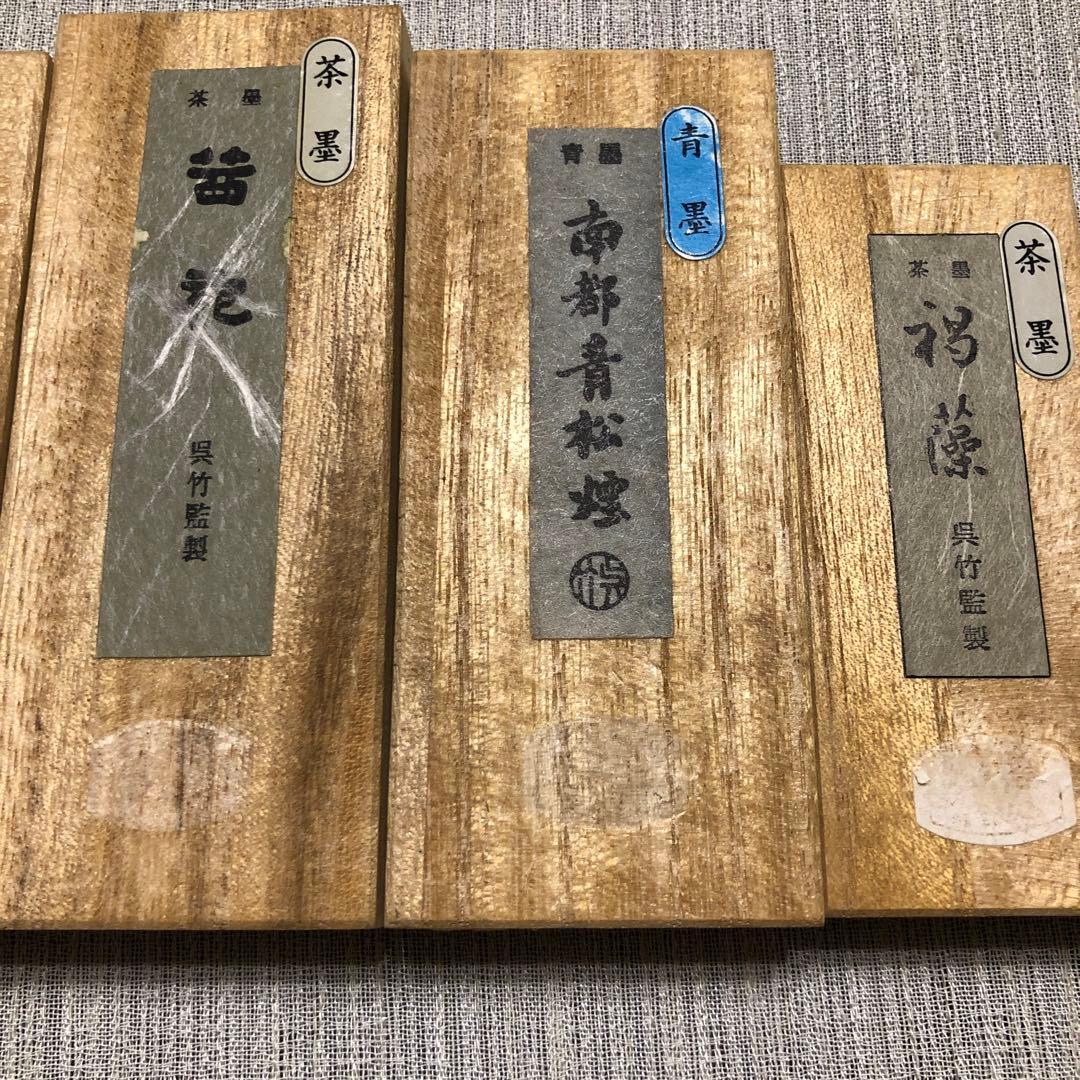 茶墨
茶墨
茜花
呉竹監製
青墨
青墨
南都青松煙
茶墨
茶墨
呉竹監製